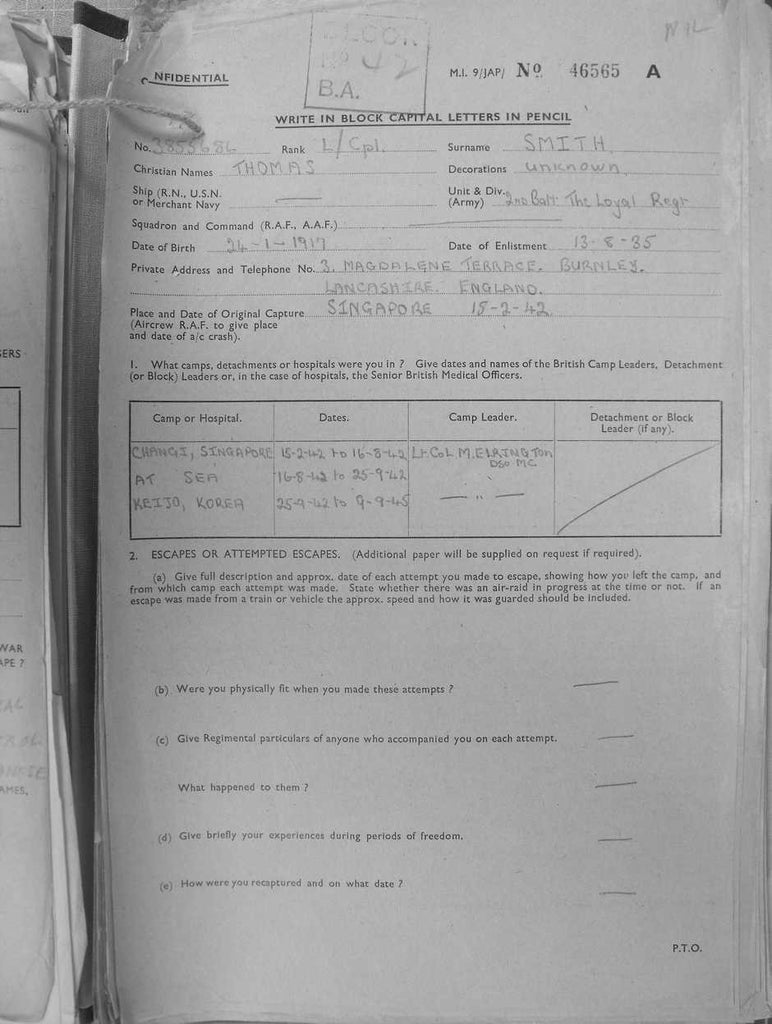 NIL
BLOCK
No J2
B.A.
NFIDENTIAL
M.I. 9/JAP/ No. 46565 A
WRITE IN BLOCK CAPITAL LETTERS IN PENCIL
No. 3855686 Rank L/Cpl. Surname SMITH
Christian Names THOMAS Decorations unknown
Ship (R.N., U.S.N. or Merchant Navy —
Unit & Div. (Army) 2nd Batt: The Loyal Regt
Squadron and Command (R.A.F., A.A.F.) —
Date of Birth 24-1-1917 Date of Enlistment 13-8-35
Private Address and Telephone No. 3. MAGDALENE TERRACE. BURNLEY.
LANCASHIRE. ENGLAND.
Place and Date of Original Capture SINGAPORE 15-2-42
(Aircrew R.A.F. to give place
and date of a/c crash).
1. What camps, detachments or hospitals were you in ? Give dates and names of the British Camp Leaders, Detachment
(or Block) Leaders or, in the case of hospitals, the Senior British Medical Officers.
Camp or Hospital. Dates. Camp Leader. Detachment or Block
Leader (if any).
CHANGI, SINGAPORE 15-2-42 to 16-8-42 Lt. Col M. ELRINGTON
DSO MC.
AT SEA 16-8-42 to 25-9-42 "
KEIJO, KOREA 25-9-42 to 9-9-45 — " —
2. ESCAPES OR ATTEMPTED ESCAPES. (Additional paper will be supplied on request if required).
(a) Give full description and approx. date of each attempt you made to escape, showing how you left the camp, and
from which camp each attempt was made. State whether there was an air-raid in progress at the time or not. If an
escape was made from a train or vehicle the approx. speed and how it was guarded should be included.
(b) Were you physically fit when you made these attempts ? —
(c) Give Regimental particulars of anyone who accompanied you on each attempt. —
What happened to them ? —
(d) Give briefly your experiences during periods of freedom. —
(e) How were you recaptured and on what date ? —
P.T.O.
ERS
WAR
APE ?
AMES,